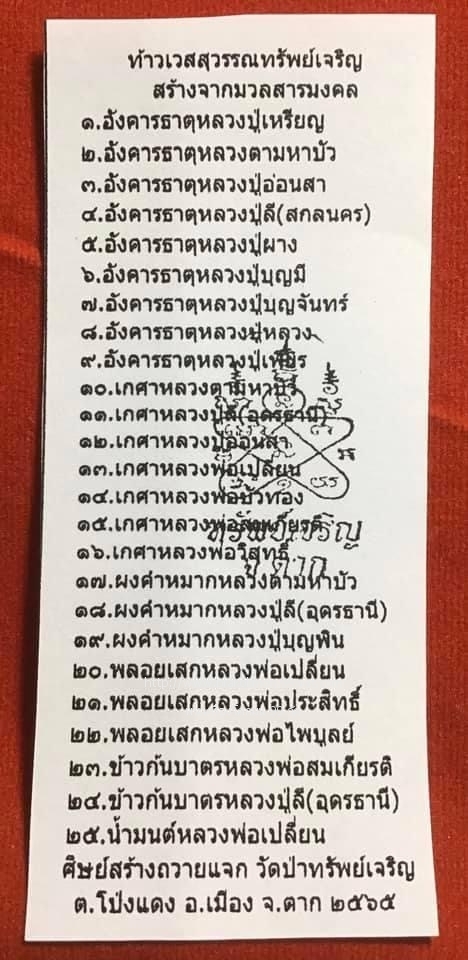 ท้าวเวสสุวรรณทรัพย์เจริญ
สร้างจากมวลสารมงคล
๑.อังคารธาตุหลวงปู่เหรียญ
๒.อังคารธาตุหลวงตามหาบัว
๓.อังคารธาตุหลวงปู่อ่อนสา
๔.อังคารธาตุหลวงปู่ลี(สกลนคร)
๕.อังคารธาตุหลวงปู่ผาง
๖.อังคารธาตุหลวงปู่บุญมี
๗.อังคารธาตุหลวงปู่บุญจันทร์
๘.อังคารธาตุหลวงปู่หลวง
๙.อังคารธาตุหลวงปู่เพียร
๑๐.เกศาหลวงตามหาบัว
๑๑.เกศาหลวงปู่ลี(อุดรธานี)
๑๒.เกศาหลวงปู่อ่อนสา
๑๓.เกศาหลวงพ่อเปลี่ยน
๑๔.เกศาหลวงพ่อบัวทอง
๑๕.เกศาหลวงพ่อสมเกียรติ
ทรัพย์เจริญ
๑๖.เกศาหลวงพ่อวิสุทธิ์
จ ตาก
๑๗.ผงคำหมากหลวงตามหาบัว
๑๘.ผงคำหมากหลวงปู่ลี(อุดรธานี)
๑๙.ผงคำหมากหลวงปู่บุญพิน
๒๐.พลอยเสกหลวงพ่อเปลี่ยน
๒๑.พลอยเสกหลวงพ่อประสิทธิ์
๒๒.พลอยเสกหลวงพ่อไพบูลย์
๒๓.ข้าวก้นบาตรหลวงพ่อสมเกียรติ
๒๔.ข้าวก้นบาตรหลวงปู่ลี(อุดรธานี)
๒๕.น้ำมนต์หลวงพ่อเปลี่ยน
ศิษย์สร้างถวายแจก วัดป่าทรัพย์เจริญ
ต.โป่งแดง อ.เมือง จ.ตาก ๒๕๖๕